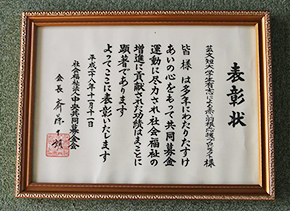 表彰状
皆様は多年にわたりたすけ
あいの心をもって共同募金
運動に尽力され社会福祉の
増進に貢献された功績はまことに
顕著であります
よってここに表彰いたします
平成二十八年十一月十一日
社会福祉法人中央共同募金会
会長